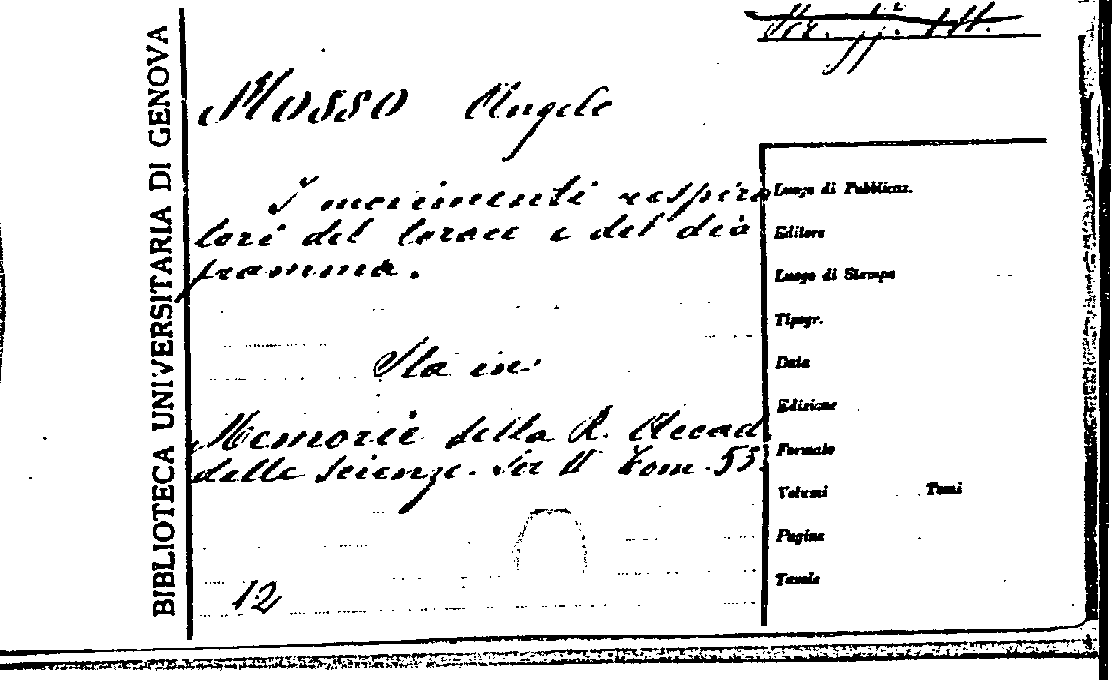 BIBLIOTECA UNIVERSITARIA DI GENOVA
MOSSO Angelo
I movimenti respira
tori del torace e del dia
framma.
Sta in
Memorie della R. Accad.
delle Scienze. Ser II Tom. 53.
12
Luogo di Pubblicaz.
Editore
Luogo di Stampa
Tipogr.
Data
Edizione
Formato
Volumi Tomi
Pagine
Tavole